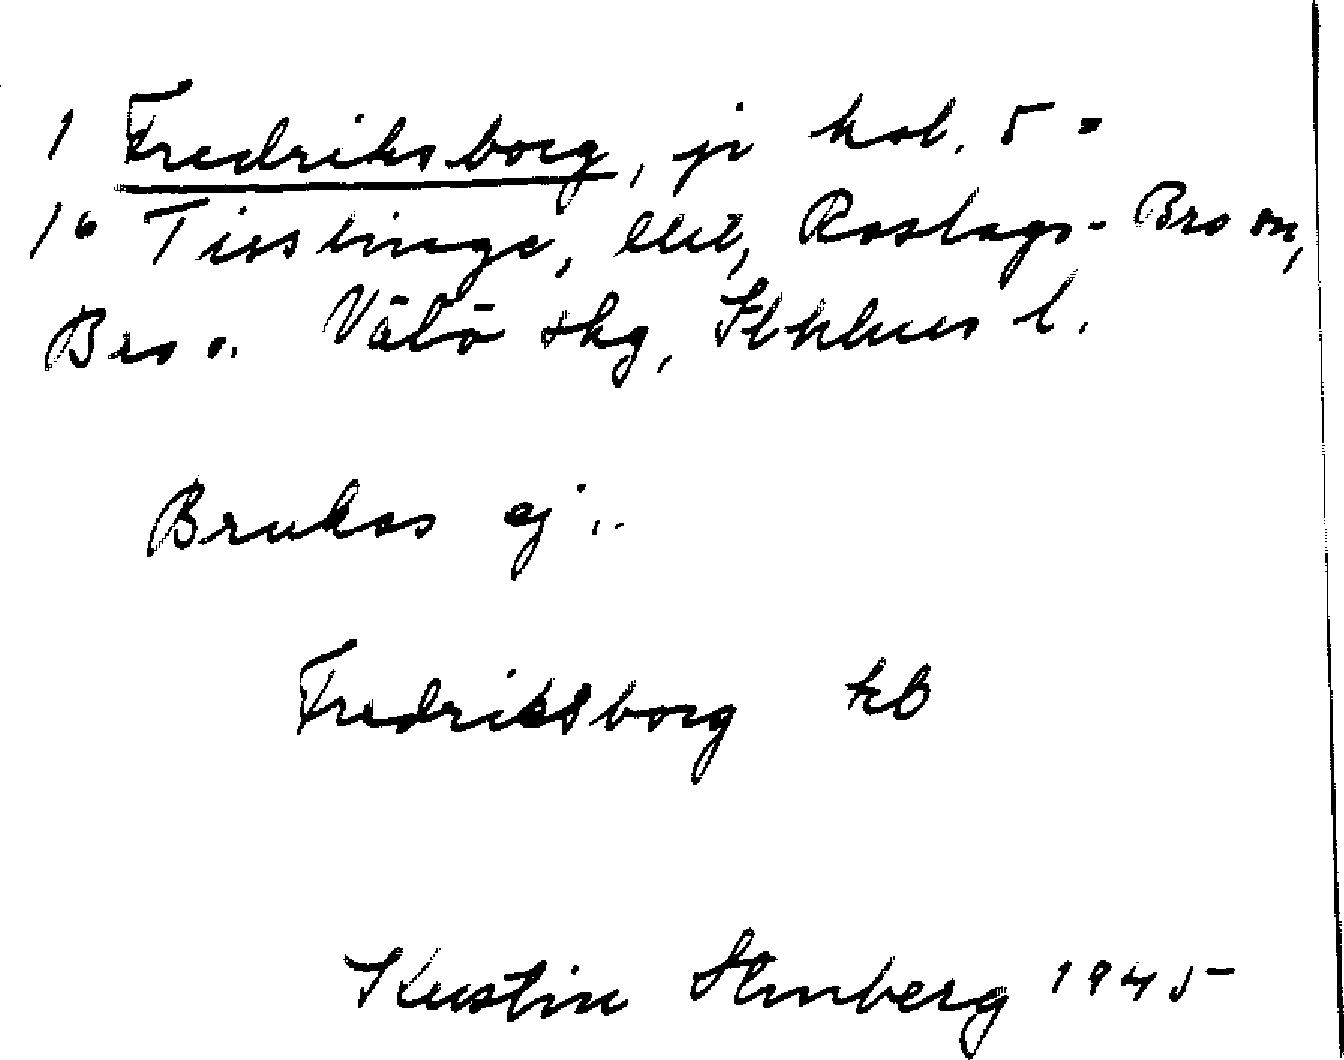 1 Fredriksborg, jr kol. 5 =
1⁶ Tisslinge, Roslags-Bro sn,
Bro o. Vätö skg, Sthlms l.
Brukas ej..
Fredriksborg kb
Kerstin Stenberg 1945